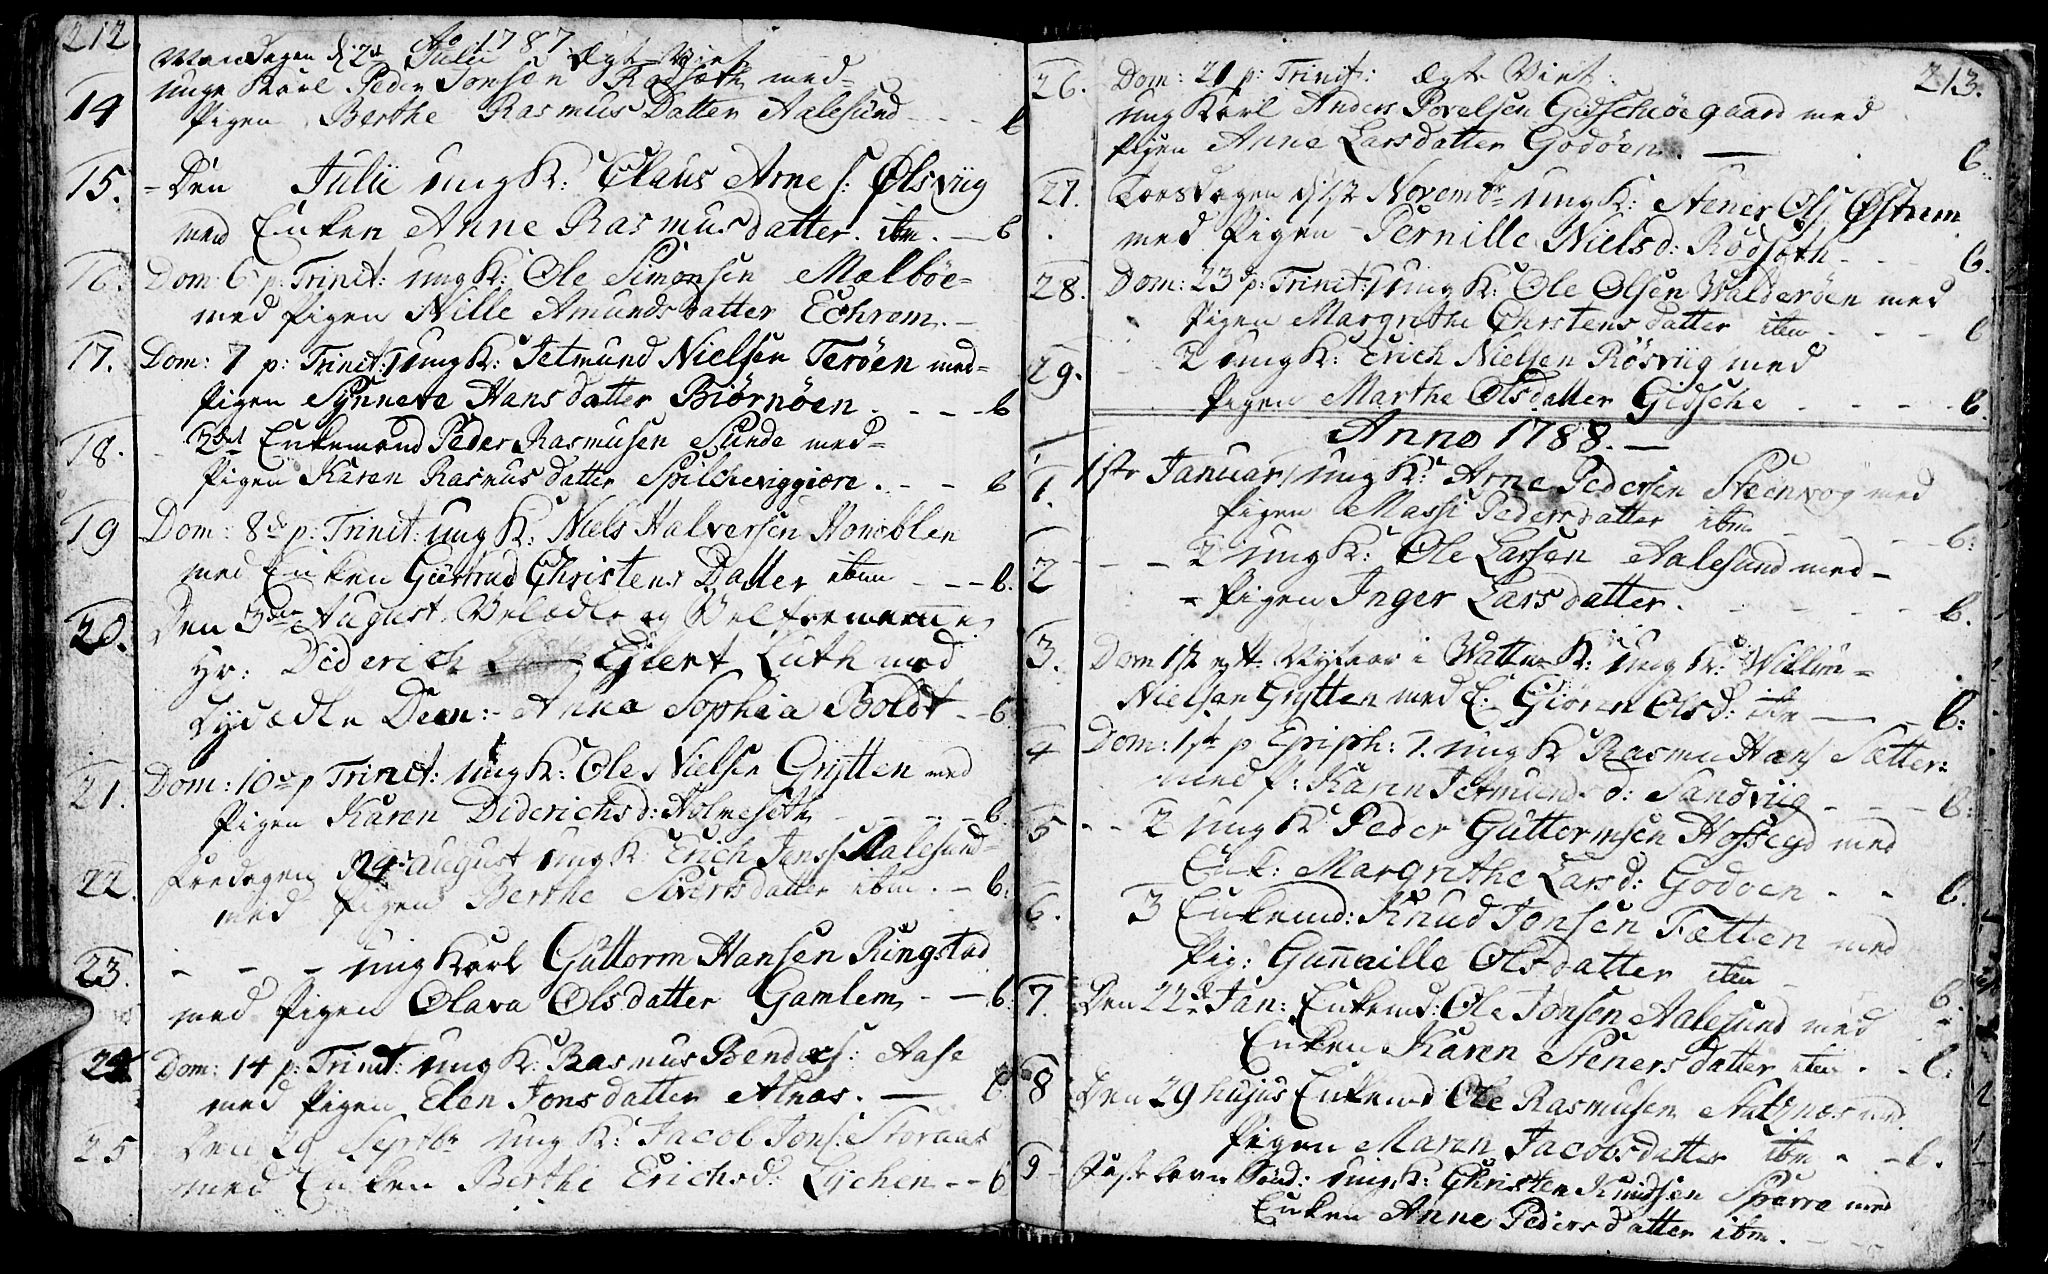 212
Ao 1787
Mandagen d: 2d Julii Ægte Viet
14 unge Karl Peder Jonsen Rødsæth med
Pigen Berthe Rasmus Datter Aalesund - - - b
15. - Den Julii ung K: Claus Arnes: Ølsviig
med Enken Anne Rasmusdatter. ibm. - b
16. Dom: 6 p: Trinit: ung K: Ole Simonsen Malbøe
med Pigen Nille Amunds datter Echrem. -
17. Dom: 7 p: Trinit: 1 ung K: Jetmund Nielsen Terøen med
Pigen Synneve Hans datter Biørnøen. - - - b
18. 2det Enkemand Peder Rasmusen Sunde med
Pigen Karen Rasmus datter Spilcheviggiere. - - b
19 Dom: 8de p: Trinit: ung K: Niels Halversen
med Enken Giertrud Christens Datter ibm - - - b.
20. Den 3die August. Velædle og Velfornemme
Hr: Diderich Eilert Lüth med
Dydædle Dem: Anna Sophia Boldt - - b
21. Dom: 10de p Trinit: ung K: Ole Nielsen Grytten med
Pigen Karen Diderichsd: Holmeseth - - - - b.
22. Fredagen d 24 August ung K: Erich Jenss Aalesund
med Pigen Berthe Siverts datter ibm. - b:
23. - - - ung Karl Guttorm Hansen Ringstad
med Pigen Olava Olsdatter Gamlem - - b:
24 Dom: 14 p: Trinit: ung K: Rasmus Benders: Aase
med Pigen Elen Jonsdatter Alnæs. - b
25 Den 29 Septbr ung K: Jacob Jons:
med Enken Berthe Erichsd: - - b
213.
26. Dom: 21 p: Trinit: Ægte Viet:
ung Karl Anders Povelsen Gidschiøegaard med
Pigen Anne Lars datter Godøen. - b.
27. Torsdagen d: 1st Novembr ung K: Stener Ols: Østrem
med Pigen Pernille Nielsd: Rødsæth - - - b.
28. Dom: 23 p: Trinit: 1 ung K: Ole Olsen Walderøen med
Pigen Margrethe Christens datter ibm - - - b
29. - - 2 ung K: Erich Nielsen Røsviig med
Pigen Marthe Olsdatter Gidsche - - - - b.
Anno 1788. -
1. 1ste Januar 1 ung K: Arne Pedersen Steenvog med
Pigen Massi Peders datter ibm - - - - b:
2 - - - 2 ung K: Ole Larsen Aalesund med
- Pigen Inger Lars datter. - - - - b.
3. Dom 1st eft: Nytaar i Watne K: ung K: Willum
Nielsen Grytten med E: Giøren Olsd: ibm - - b:
4 Dom: 1ste p Epiph: 1. ung K Rasmus Hans Sætter
med P: Karen Jetmund d: Sandviig - - - b:
5 - - 2 ung K Peder Guttormsen med
Enk: Margrethe Larsd: Godøen - - b.
6. 3 Enkemd: Knud Jonsen Fætten med
Pig: Gunnille Olsdatter ibm - b.
7. Den 22de Jan: Enkemd: Ole Jonsen Aalesund med
Enken Karen Steners datter ibm. - b:
8 Den 29 hujus Enkemd Ole Rasmusen med
Pigen Maren Jacobsdatter ibm - - b.
9 - Faste lavns Sønd: ung K: Christen Knudsen Sperre med
Enken Anne Peders datter ibm. - -